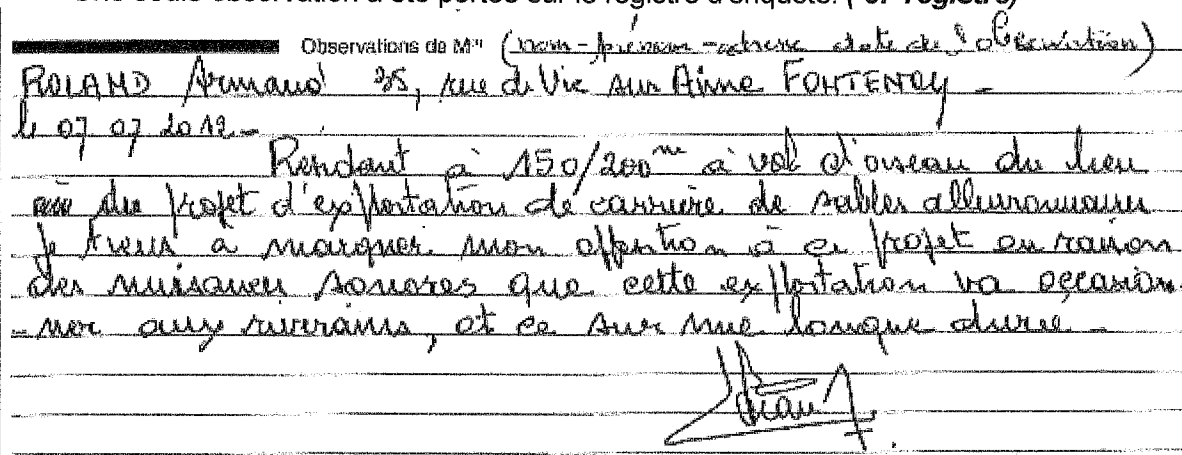 Une seule observation a été portée sur le registre d'enquête. (cf registre)
Observations de M(1) (nom - prénom - adresse date de l'observation)
ROLAND Armand 35, rue de Vic sur Aisne FONTENOY -
le 07 07 2012 -
Rendant à 150/200m à vol d'oiseau du lieu
du projet d'exploitation de carrière de sables alluvionnaires
je tiens à marquer mon opposition à ce projet en raison
des nuisances sonores que cette exploitation va occasion
-ner aux riverains, et ce sur une longue durée -